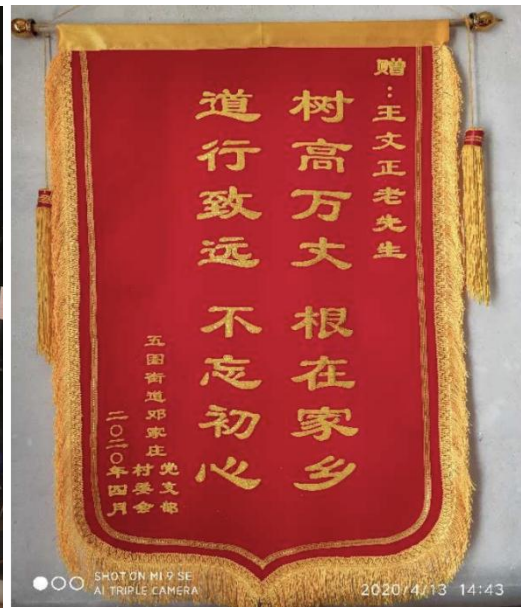 赠：王文正老先生
树高万丈 根在家乡
道行致远 不忘初心
五图街道邓家庄党支部
村委会
二〇二〇年四月
SHOT ON MI 9 SE
AI TRIPLE CAMERA
2020/4/13 14:43